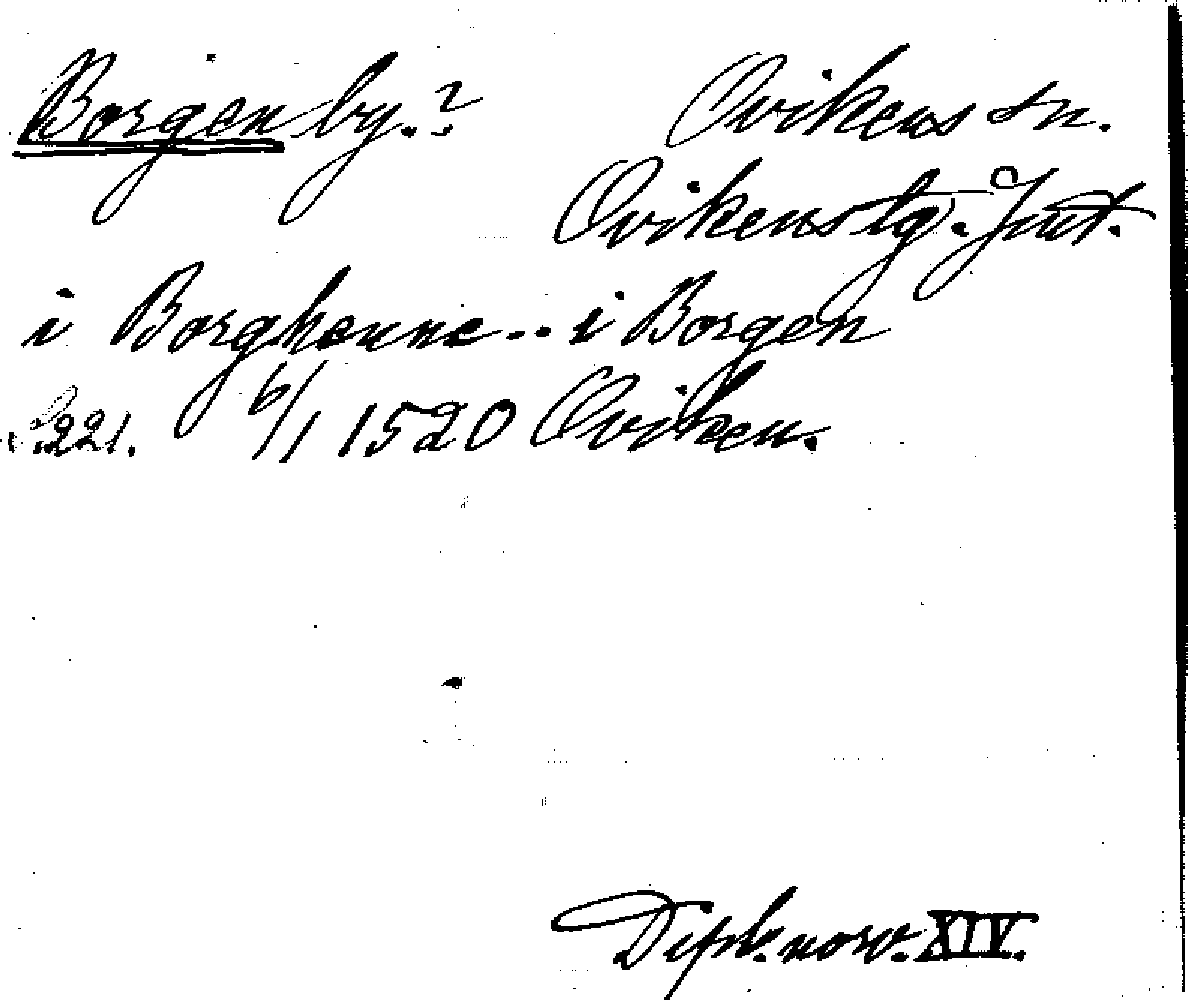 Borgen by.? Ovikens sn.
Ovikens tg. Jmt.
i Borghenne -- i Borgen
S. 221. 6/1 1520 Oviken.
Dipl. norv. XIV.